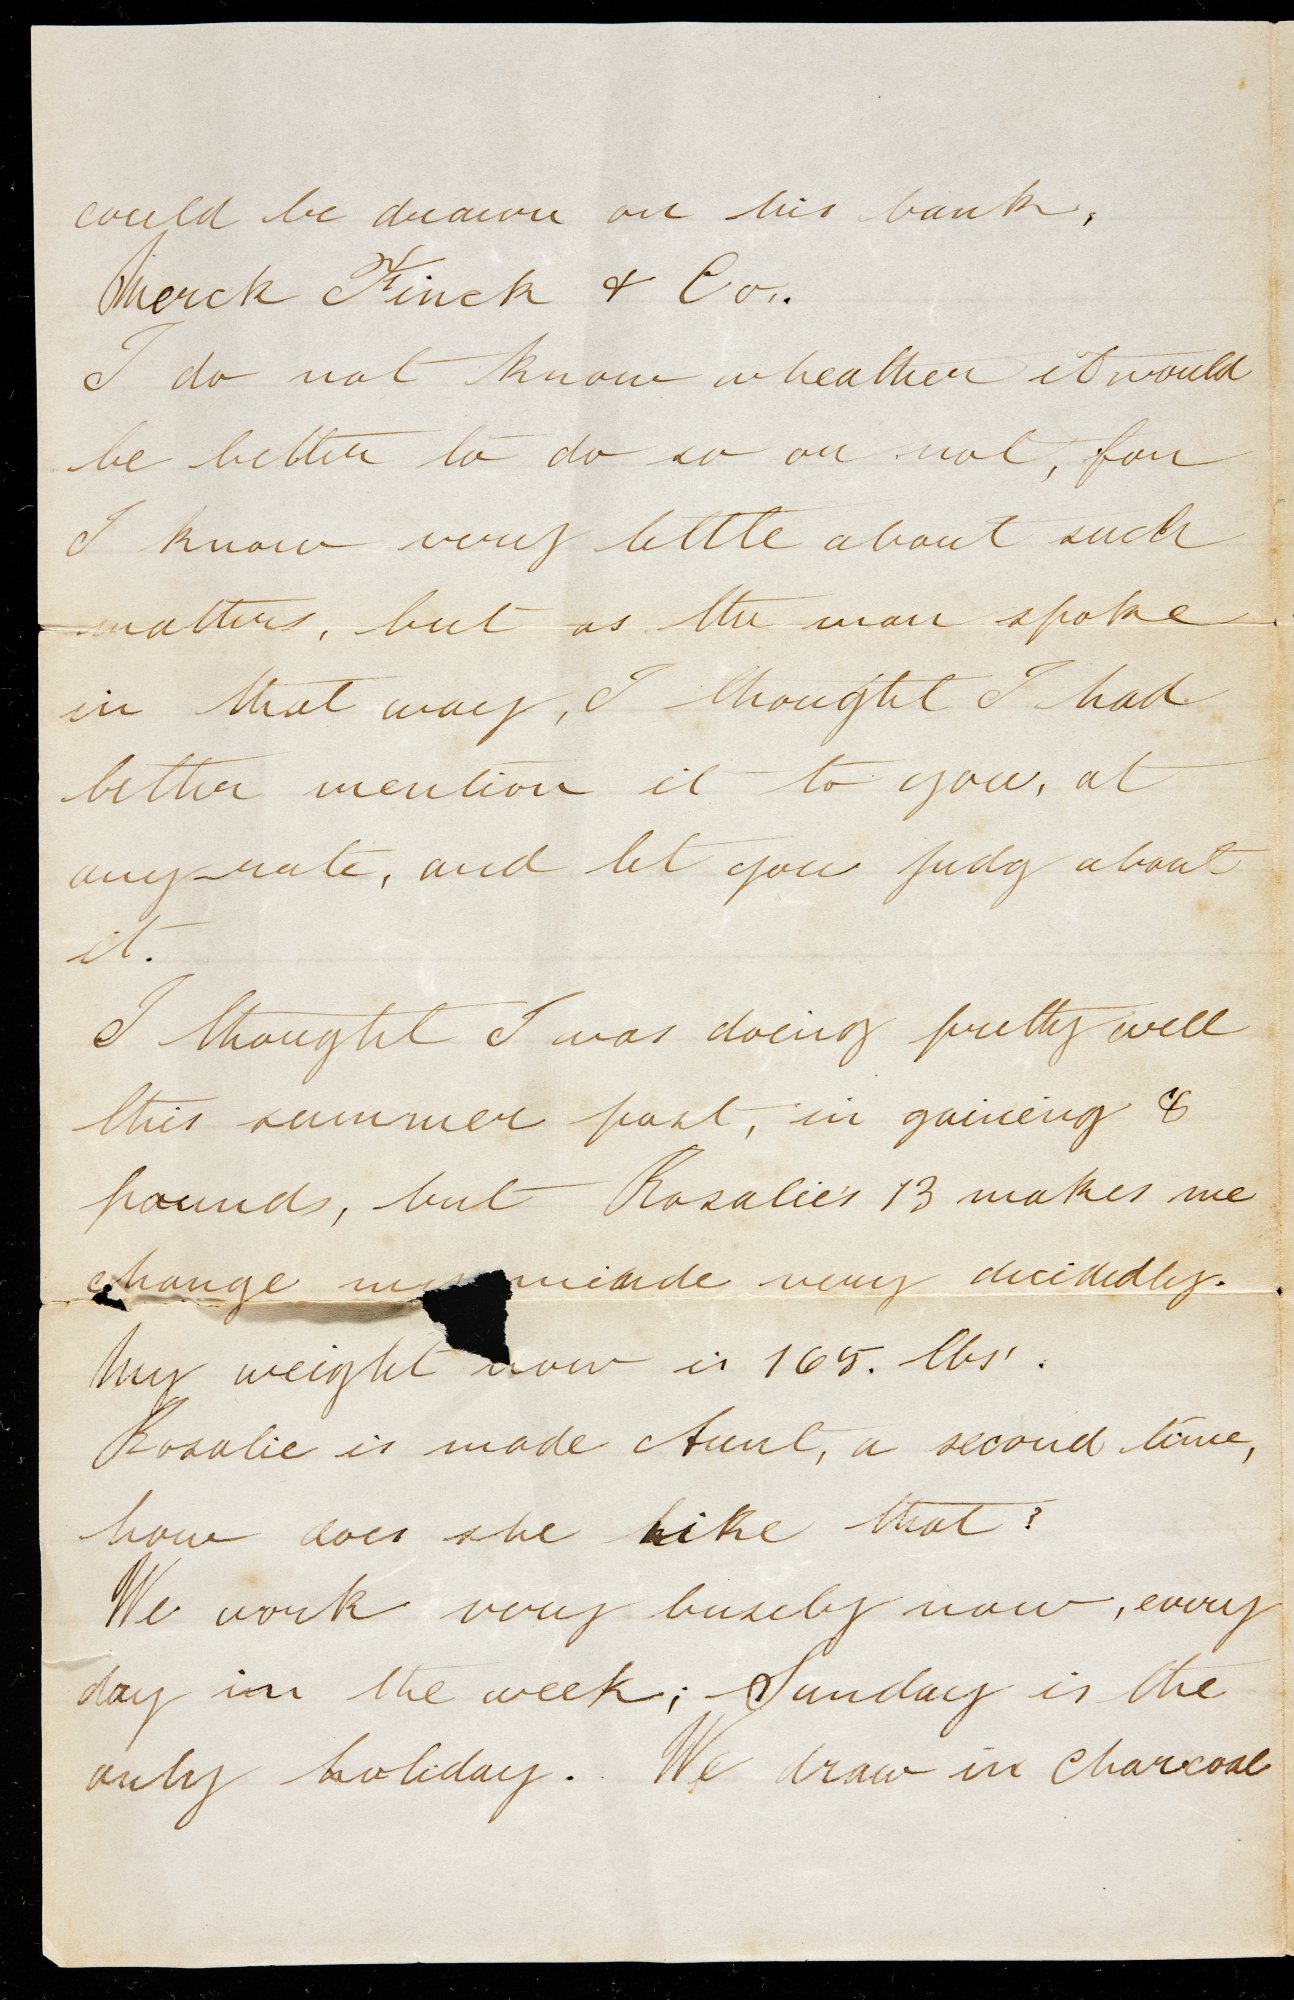 could be drawn on his bank,
Merck Finck & Co..
I do not know wheather it would
be better to do so or not, for
I know very little about such
matters, but as the man spoke
in that way, I thought I had
better mention it to you, at
any-rate, and let you judg about
it.
I thought I was doing pretty well
this summer past, in gaining 8
pounds, but Rosalie's 13 makes me
change my minde very decidedly.
My weight now is 165. lbs.
Rosalie is made Aunt, a second time,
how does she like that?
We work very busely now, every
day in the week; Sunday is the
only holiday. We draw in Charcoal